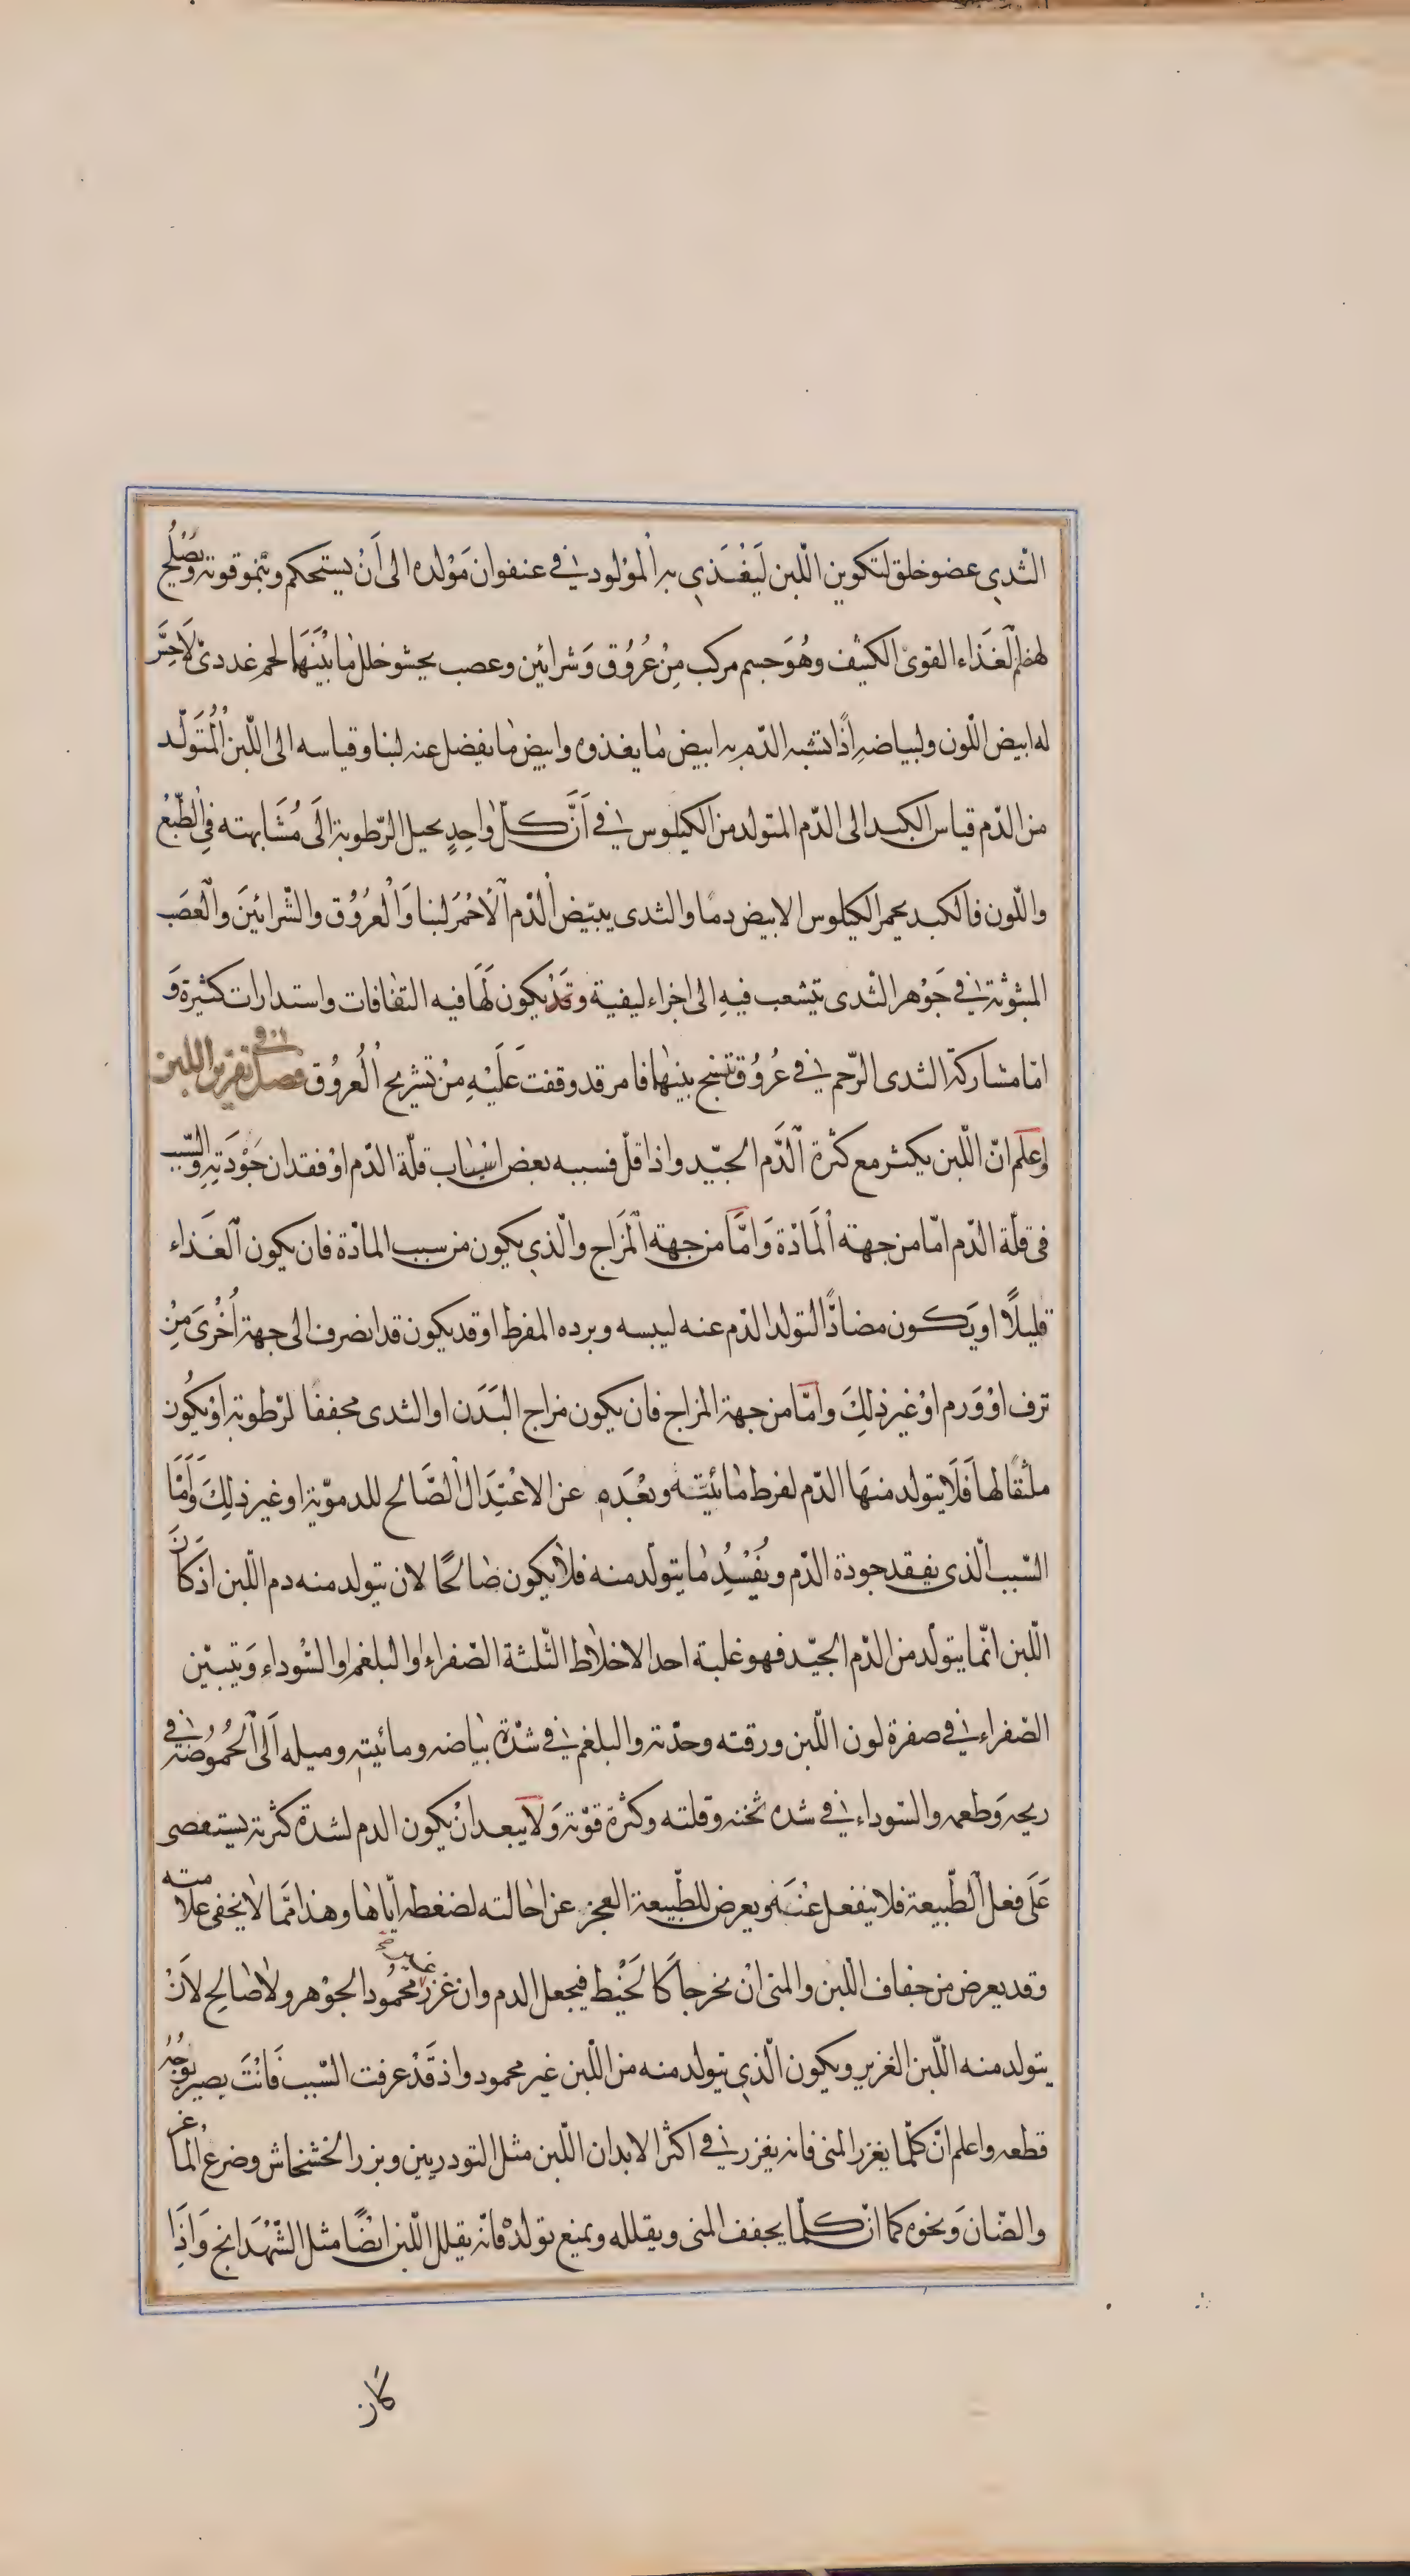 الثّدي عضو خلق لتكوين اللّبن ليَغْتَذي به المولود في عنفوان مَوْلده الى اَنْ يستحكم وينمو قوته ويَصْلح
لهضم الغَذاء القوىّ الكثيف وهُوَ جسم مركب مِنْ عُرُوُق وَشرائين وعصب يحشو خلل ما بَيْنَهَا لحم غددىّ لَا حِسَّ
له ابيض اللّون ولبياضهِ اذًا تشبه الدّم به ابيض ما يغذوه وابيض ما يفضل عنه لبنا وقياسه الى اللّبن اْلمُتَولّد
من الدّم قياس الكبد الى الدّم المتولد من الكيلوس في اَنَّ كلّ واحِدٍ يحيل الرّطوبة الَى مُشَابهته في الطّبْعْ
واللّون فالكبد يحمر الكيلوس الابيض دمًا والثدى يبيّض الْدّم اْلَاحْمَر لبنا وَالْعرُوُق والشّرائينَ والْعصَب
المبثوثة في جَوْهر الثدى يتشعب فيهِ الى اجزاء ليفية وقَدْ يكون لَهَا فيه التفافات واستدارات كثيرة وَ
امّا مشاركة الثدى الرّحم في عُرُوُق تنسج بينهما فامر قد وقفت عَلَيْهِ مِنْ تشريح الْعُروُق فصل في تغزير اللبن
واعلم انّ اللّبن يكثر مع كثرة الَدّم الجيّد واذا قلّ فسببه بعض اسْبَاب قلّة الدّم اوْ فقدان جَوْدَتِهِ والسّبب
فى قلّة الدّم امّا من جهة اْلمَادّة وَامَّا من جهة اْلمزَاج والّذي يكون من سبب المادّة فان يكون الْغَذاء
قليلًا او يَكون مضادًّا لتولد الدّم عنه ليبسه وبرده المفرط او قد يكون قد انصرف الى جهة اُخْرىَ مِنْ
نزف اوْ وَرم اوْ غير ذلِكَ وامّا من جهة المزاج فان يكون مزاج البَدَن او الثدى مجففا لرّطوبة اوْ يكَوُن
ملثقًا لها فَلَا يتولد منهَا الدّم لفرط مَائيّتَه وبعْدَه عن الاعْتِدَال الْصَّالح للدموّية او غير ذلِكَ وَامّا
السّبب الّذى يفقد جودة الدّم ويُفْسِدُ ما يتولّد منه فلا يكون صَالحًا لان يتولد منه دم اللّبن اذ كانَ
اللّبن انّما يتولّد من الدّم الجيّد فهو غلبة احد الاخلاط الثّلثة الصّفراء او البلغم او السّوداء وَيتبيّن
الصّفراء في صفرة لون اللّبن ورقته وحدّته والبلغم في شدّة بيَاضه ومائيته وميله اَلى الْحُمُوُضة في
ريحه وَطعمه والسّوداء في شده ثخنه وقلته وكثرة قوّته وَلَا يبعد انْ يكون الدم لشدة كثرته يستعصى
عَلَى فعل الْطّبيعة فلا ينفعل عَنْهَ ويعرض للطّبيعة العجز عن احَالته لضغطه ايّاها وهذا ممّا لا يخفى علامته
وقد يعرض من جفاف اللّبن والمنى انْ يخرجا كَالَخيْط فيجعل الدم وان غزر غير محمُود الجوْهر ولا صَالح لاَنْ
يتولد منه اللّبن الغزير ويكون الّذي يتولد منه من اللّبن غير محمود واذ قَدْ عرفت السّبب فَانْتَ بصير بوجُهُ
قطعه واعلم انّ كلّما يغزر المنى فانه يغزر في اكثر الابدان اللّبن مثل التودريين وبزر الخشخاش وضرعْ الْماعز
والضّان وَنحوه كما انّ كلّما يجفف المنى ويقلله ويمنع تولدهْ فانّه يقلل اللّبن ايضًا مثل الشّهْدَانج وَاذِا
كان